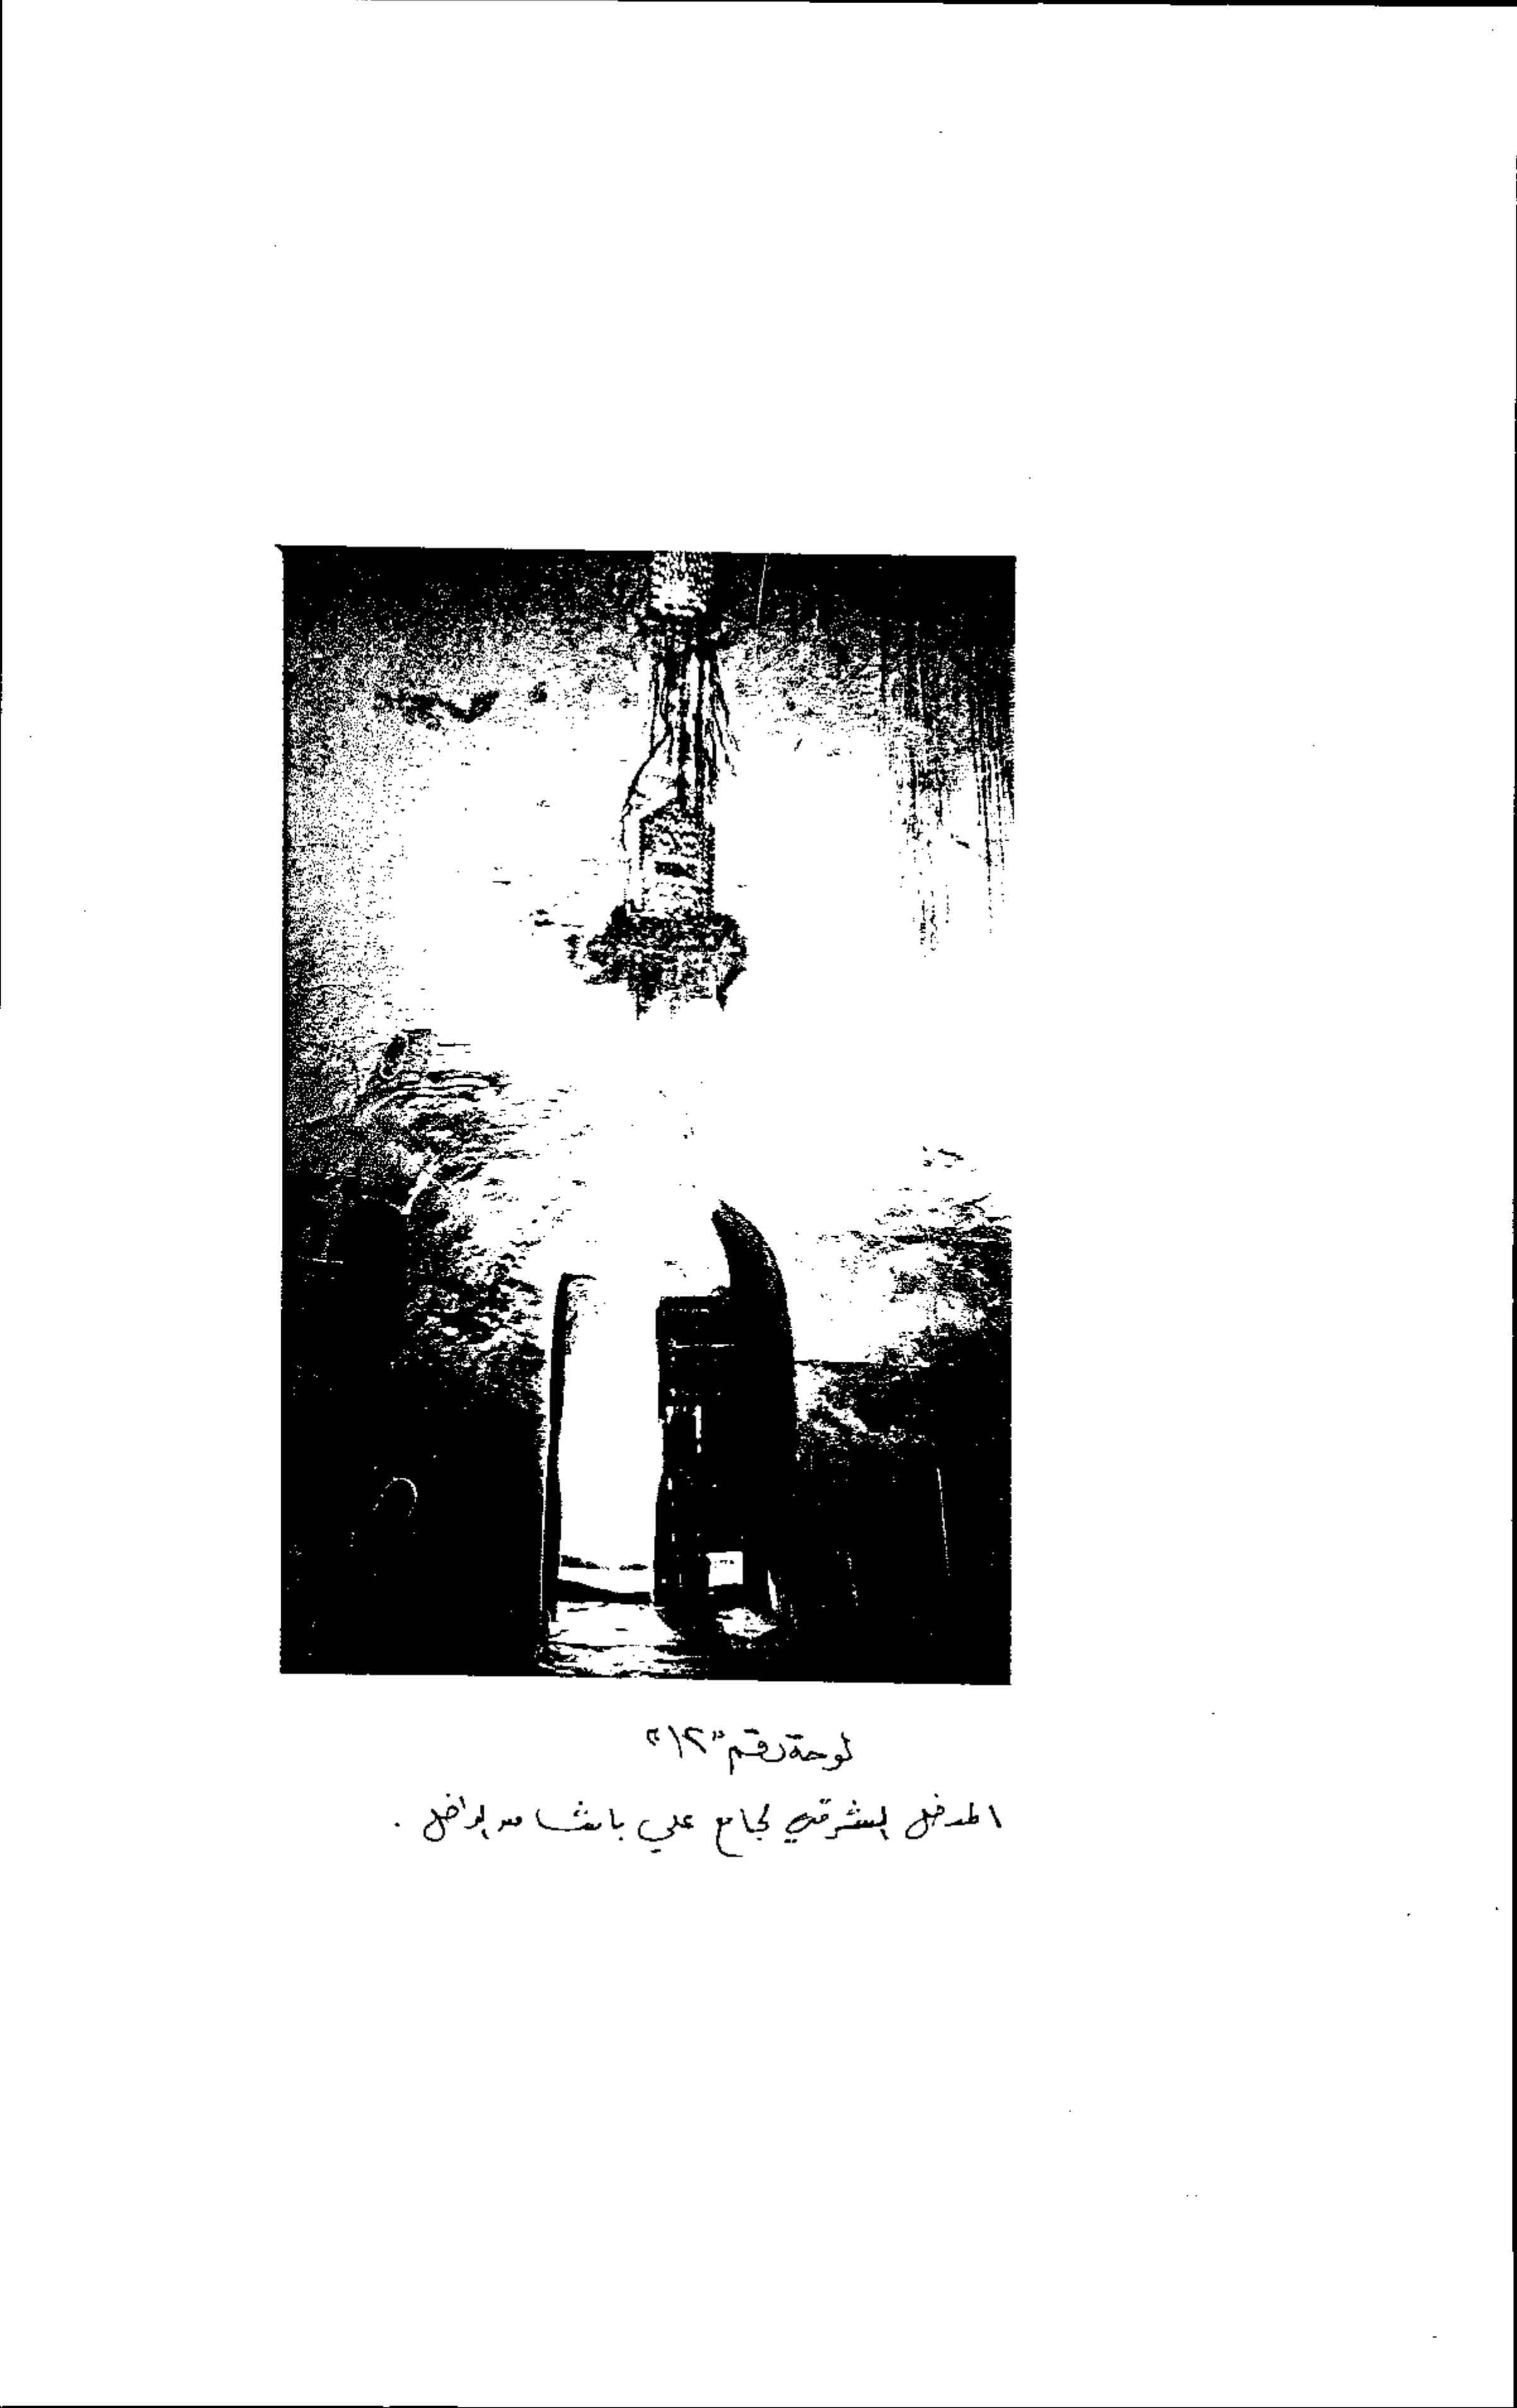 لوحة رقم "١٢"
المدخل الشرقي لجامع علي باشا من الداخل .